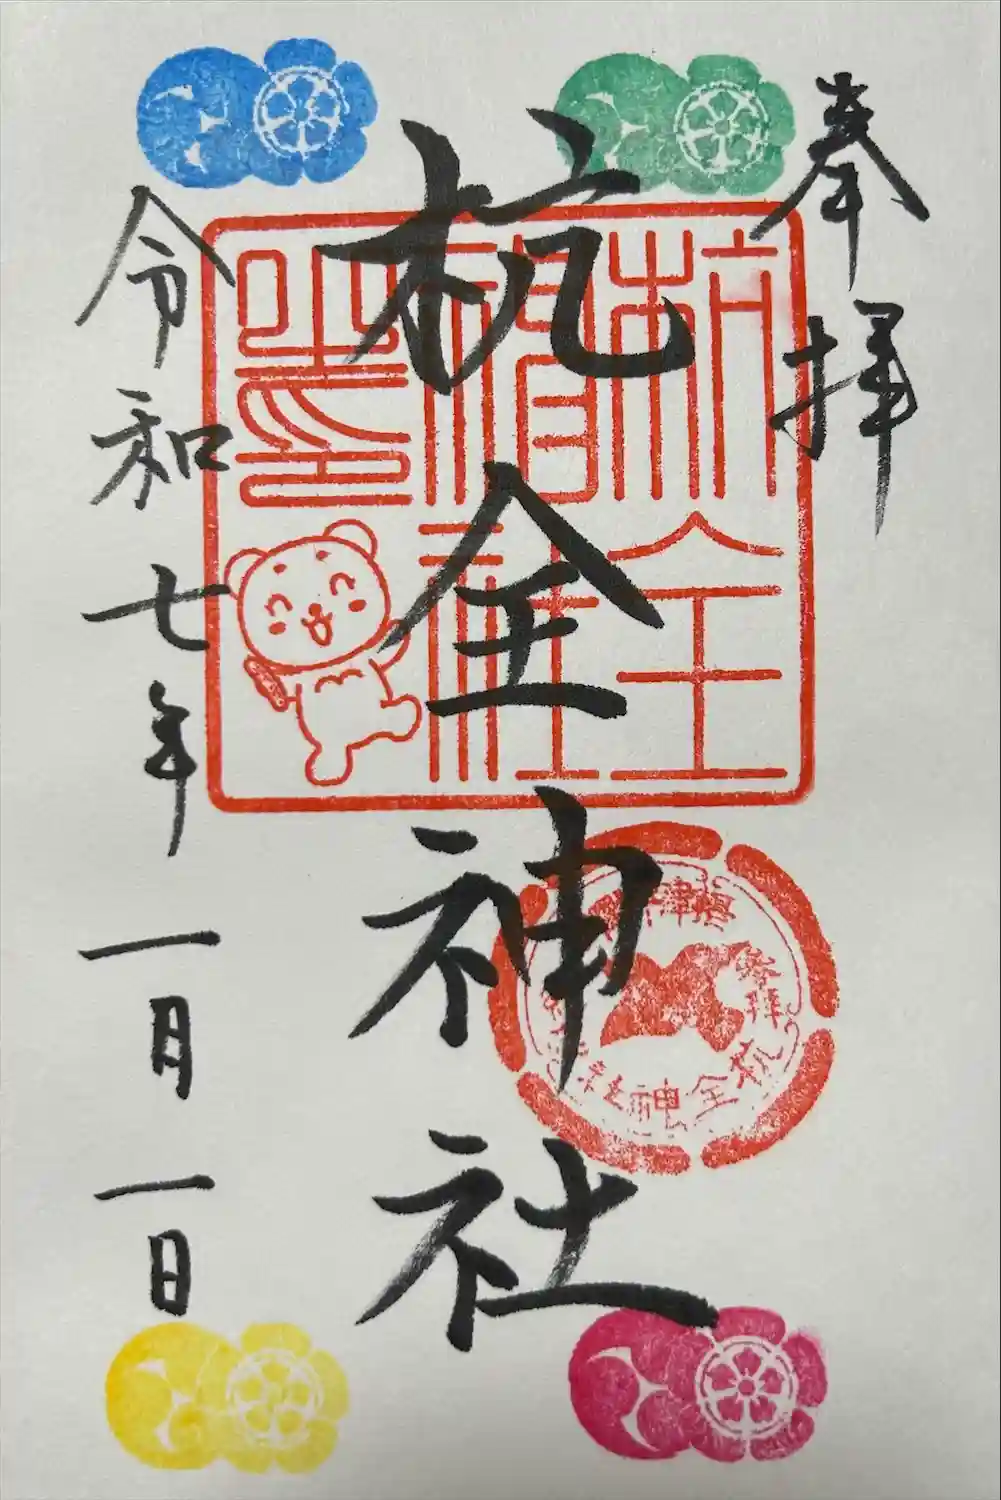 奉拝
杭全神社
令和七年一月一日
杭全
神社
杭全神社